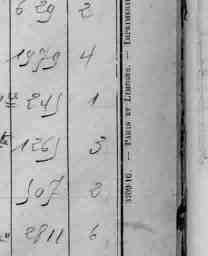 629 2
1979 4
245 1
1265 3
507 2
2811 6
37091G. — PARIS ET LIMOGES. — IMPRIMERIE